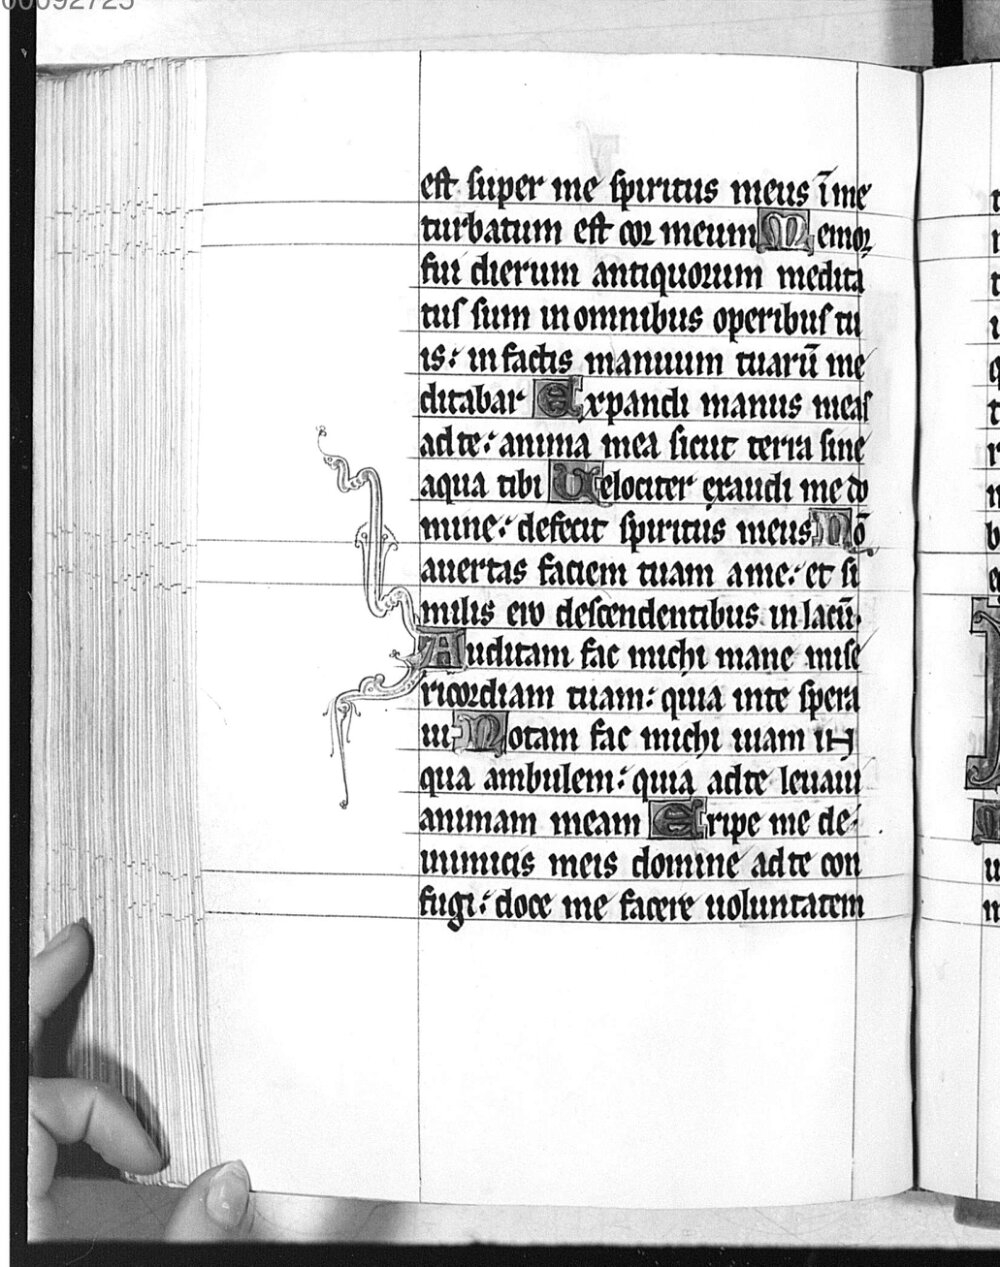 00092725
est super me spiritus meus ī me
turbatum est cor meum Memor
fui dierum antiquorum medita
tus sum in omnibus operibus tu
is: in factis manuum tuarū me
ditabar Expandi manus meas
ad te: anima mea sicut terra sine
aqua tibi Uelociter exaudi me do
mine: defecit spiritus meus Nō
auertas faciem tuam a me: et si
milis ero descendentibus in lacū.
Auditam fac michi mane mise
ricordiam tuam: quia in te spera
ui Notam fac michi uiam in
qua ambulem: quia ad te leuaui
animam meam Eripe me de
inimicis meis domine ad te con
fugi: doce me facere uoluntatem